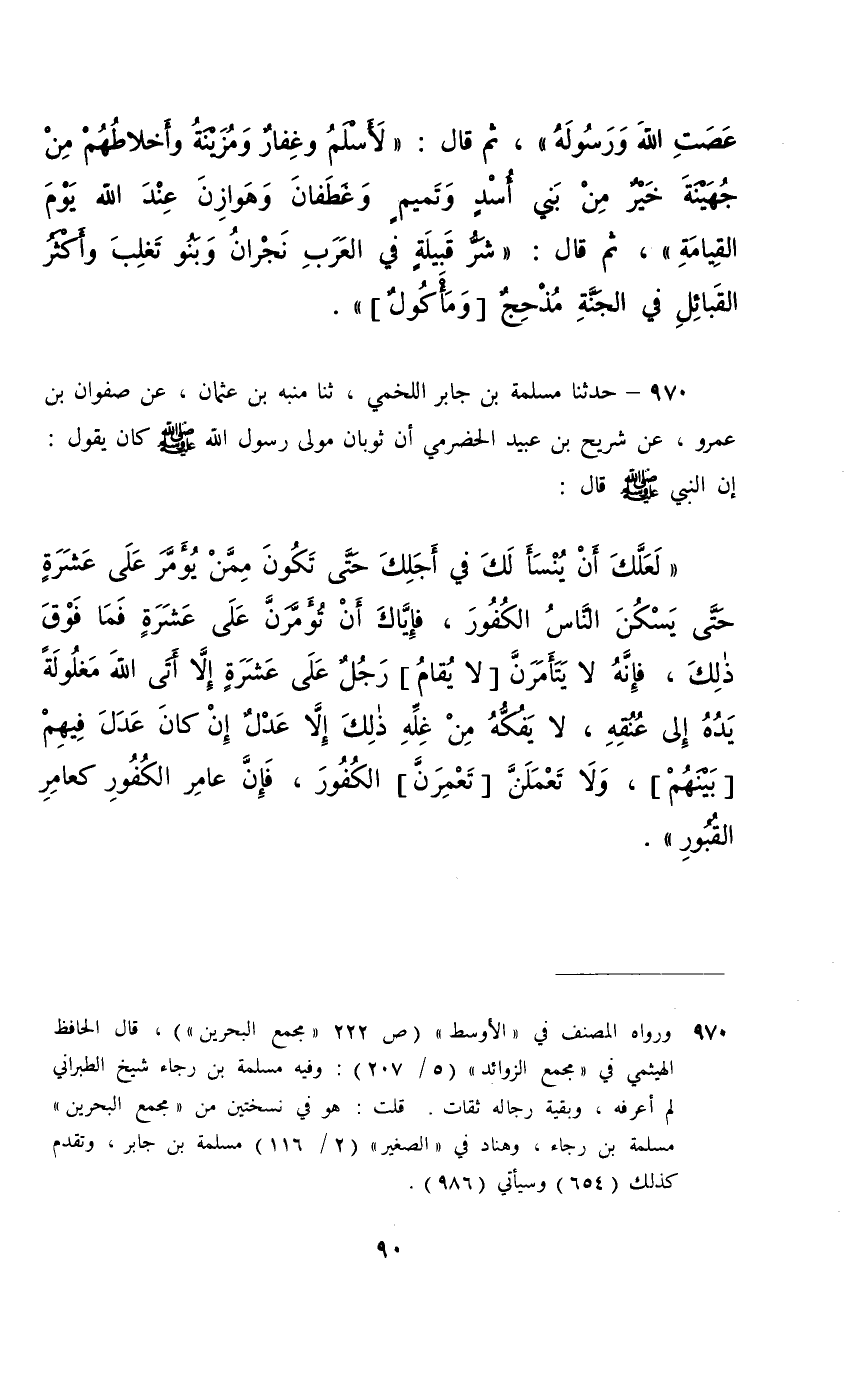 عَصَتِ اللهَ وَرَسُولَهُ » ، ثم قال : « لَأَسْلَمُ وغِفارٌ وَمُزَيْنَةُ وأَخلاطُهُمْ مِنْ
جُهَيْنَةَ خَيْرٌ مِنْ بَني أُسْدٍ وَتَميمٍ وَغَطَفانَ وَهَوازِنَ عِنْدَ الله يَوْمَ
القِيامَةِ » ، ثم قال : « شرُّ قَبيلَةٍ في العَرَبِ نَجْرانُ وَبَنُو تَغلِبَ وأَكْثَرُ
القَبائِلِ في الجَنَّةِ مُذْحِجٌ [ وَمَأْكُولٌ ] » .
٩٧٠ – حدثنا مسلمة بن جابر اللخمي ، ثنا منبه بن عثمان ، عن صفوان بن
عمرو ، عن شريح بن عبيد الحضرمي أن ثوبان مولى رسول الله ﷺ كان يقول :
إن النبي ﷺ قال :
« لَعَلَّكَ أَنْ يُنْسَأَ لَكَ في أَجَلِكَ حَتَّى تَكُونَ مِمَّنْ يُؤَمَّرَ عَلَى عَشَرَةٍ
حَتَّى يَسْكُنَ النَّاسُ الكُفُورَ ، فإِيَّاكَ أَنْ تُؤَمَّرَنَّ عَلَى عَشَرَةٍ فَمَا فَوْقَ
ذٰلِكَ ، فإِنَّهُ لا يَتَأَمَرَنَّ [ لا يُقامُ ] رَجُلٌ عَلَى عَشَرَةٍ إِلَّا أَتَى اللهَ مَغلُولَةً
يَدُهُ إِلى عُنُقِهِ ، لا يَفُكُّهُ مِنْ غِلِّهِ ذٰلِكَ إِلَّا عَدْلٌ إِنْ كانَ عَدَلَ فِيهِمْ
[ بَيْنَهُمْ ] ، وَلَا تَعْمَلَنَّ [ تَعْمِرَنَّ ] الكُفُورَ ، فَإِنَّ عامِر الكُفُورِ كعامِرِ
القُبُورِ » .
٩٧٠ ورواه المصنف في « الأوسط » ( ص ٢٢٢ « مجمع البحرين » ) ، قال الحافظ
الهيثمي في « مجمع الزوائد » ( ٥ / ٢٠٧ ) : وفيه مسلمة بن رجاء شيخ الطبراني
لم أعرفه ، وبقية رجاله ثقات . قلت : هو في نسختين من « مجمع البحرين »
مسلمة بن رجاء ، وهناد في « الصغير » ( ٢ / ١١٦ ) مسلمة بن جابر ، وتقدم
كذلك ( ٦٥٤ ) وسيأتي ( ٩٨٦ ) .
٩٠